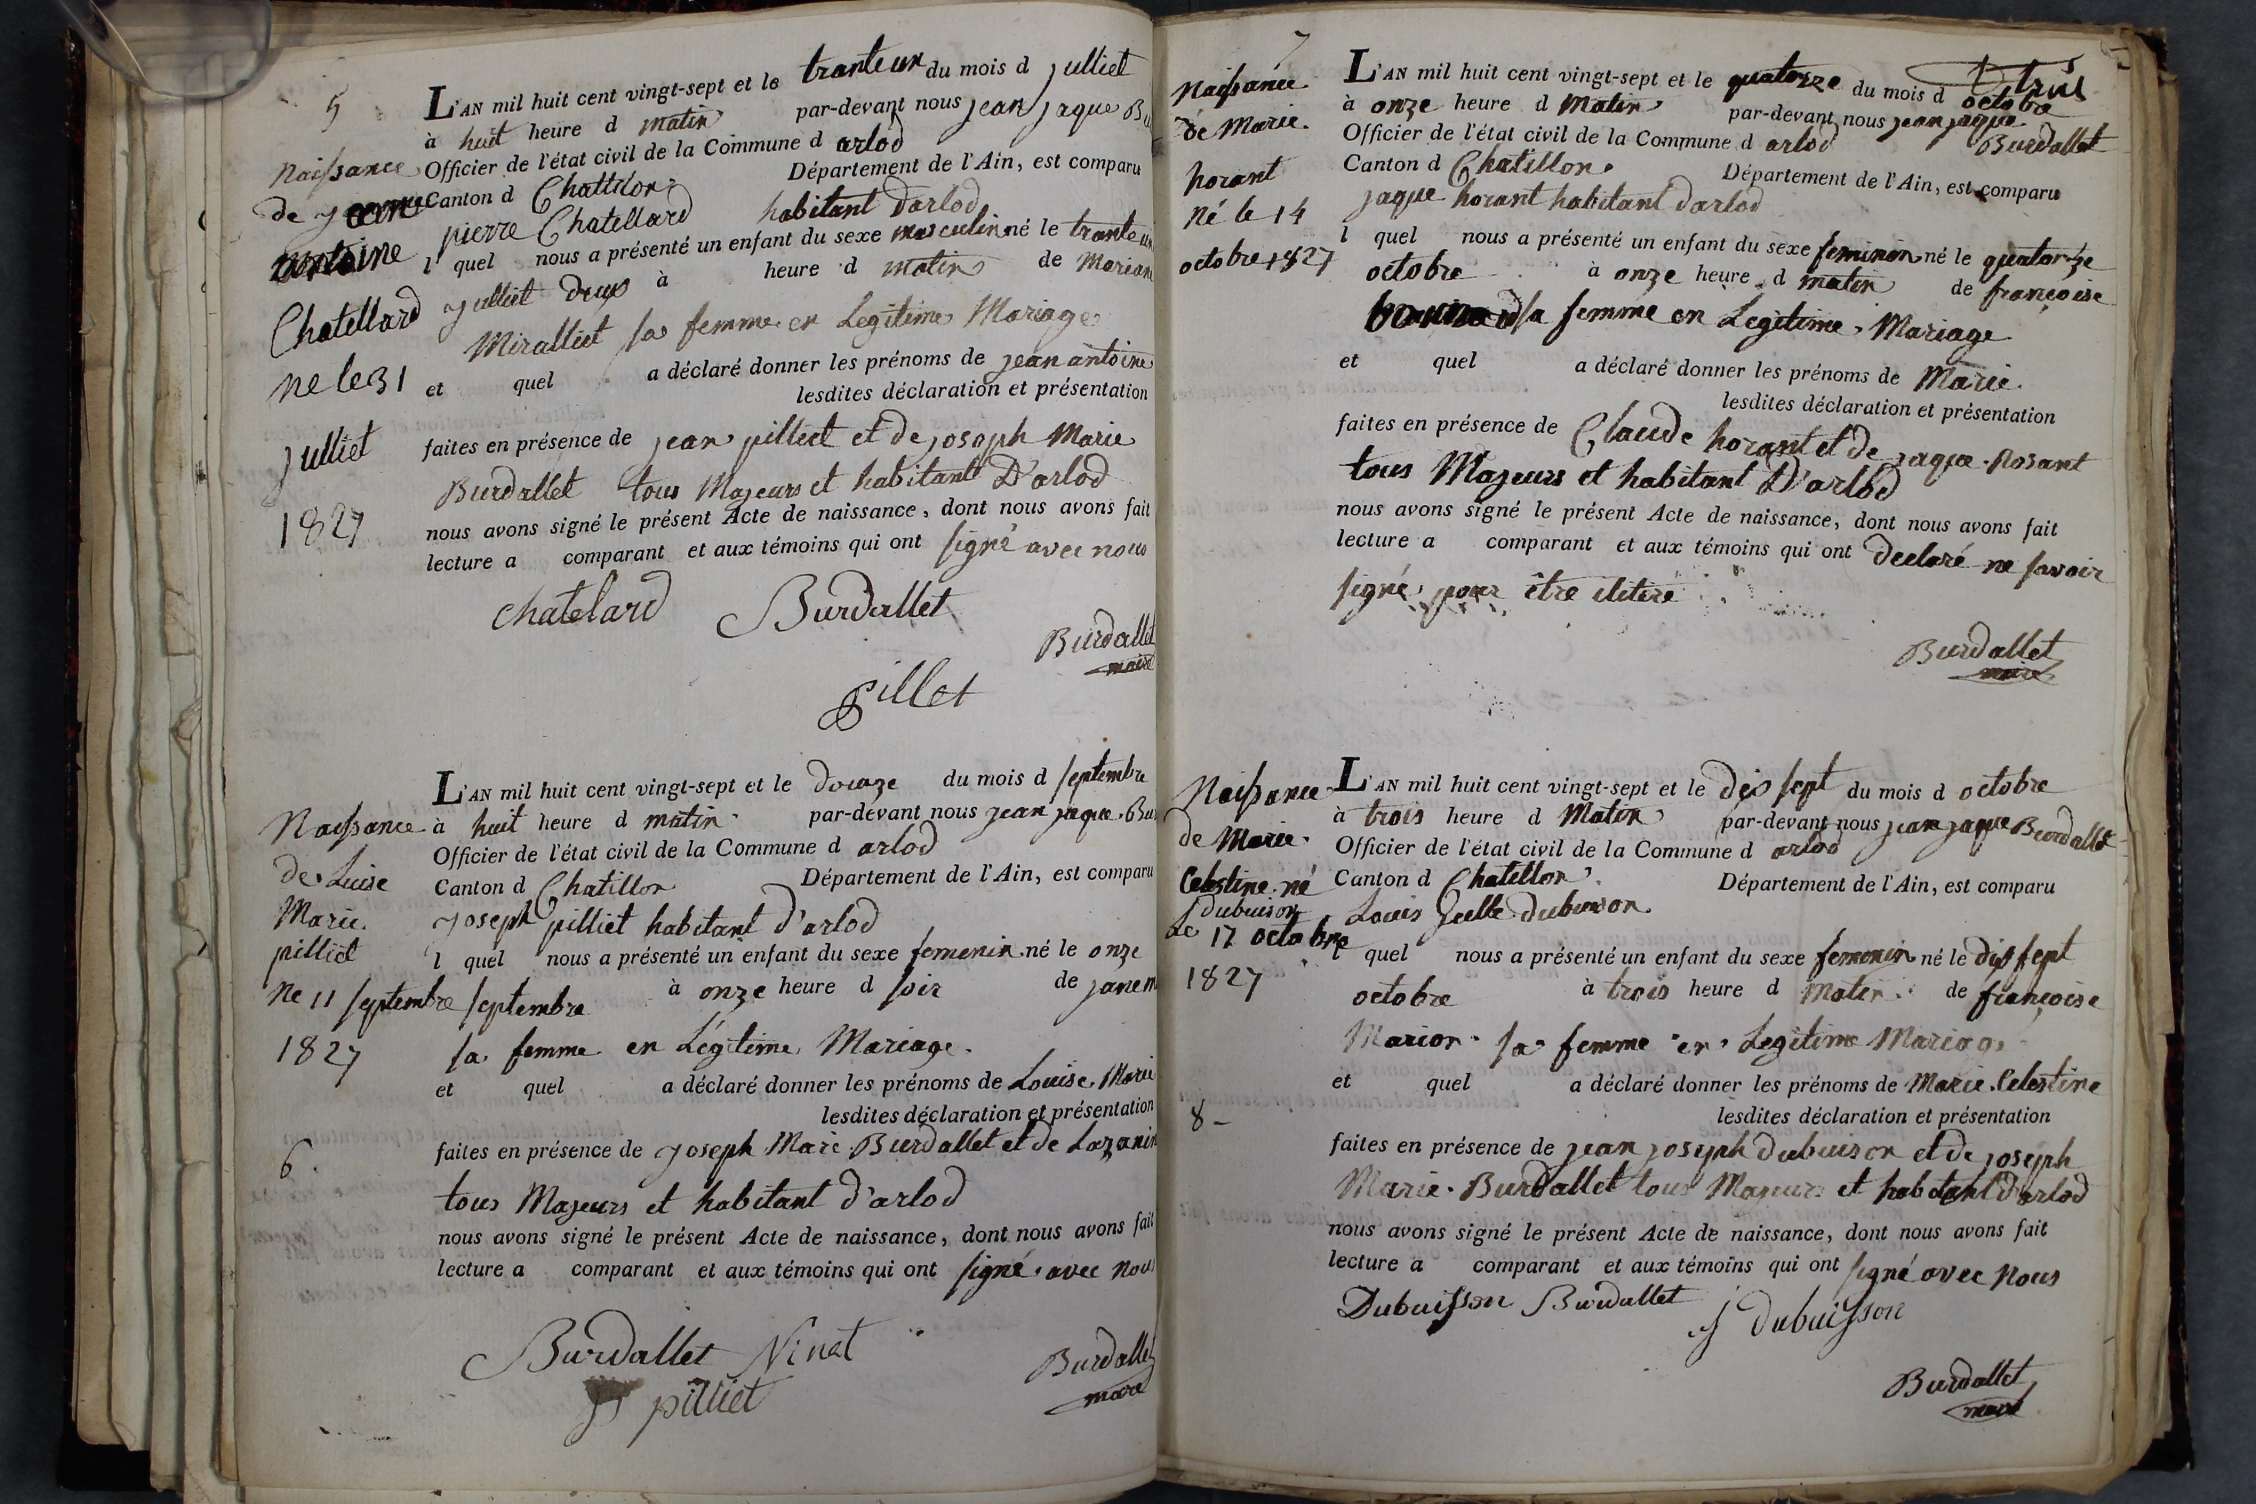 5
Naissance
de jeanne
antoine
Chatellard
ne le 31
julliet
1827
L'AN mil huit cent vingt-sept et le tranteun du mois d julliet
à huit heure d matin par-devant nous jean jaque Bu
Officier de l'état civil de la Commune d arlod
Canton d Chattillon Département de l'Ain, est comparu
pierre Chatellard habitant darlod
l quel nous a présenté un enfant du sexe masculin né le tranteun
julliet à heure d matin de Marian
Miralliet sa femme en Legitime Mariage
et quel a déclaré donner les prénoms de jean antoine
lesdites déclaration et présentation
faites en présence de jean pilliet et de josoph Marie
Burdallet tous Majeurs et habitant D'arlod
nous avons signé le présent Acte de naissance, dont nous avons fait
lecture a comparant et aux témoins qui ont signé avec nous
chatelard Burdallet
Burdallet
maire
pillet
Naissance
de Luise
Marie
pilliet
ne 11 septembre
1827
6.
L'AN mil huit cent vingt-sept et le douaze du mois d septembre
à huit heure d matin par-devant nous jean jaque Bur
Officier de l'état civil de la Commune d arlod
Canton d Chatillon Département de l'Ain, est comparu
joseph pilliet habitant d'arlod
l quel nous a présenté un enfant du sexe femenin né le onze
septembre à onze heure d soir de
sa femme en Légitime Mariage
et quel a déclaré donner les prénoms de Louise Marie
lesdites déclaration et présentation
faites en présence de joseph Marie Burdallet et de
tous Majeurs et habitant d'arlod
nous avons signé le présent Acte de naissance, dont nous avons fait
lecture a comparant et aux témoins qui ont signé avec nous
Burdallet Ninet
pilliet
Burdallet
maire
7
Naissance
de Marie
horant
né le 14
octobre 1827
L'AN mil huit cent vingt-sept et le quatorze du mois d octobre
à onze heure d Matin par-devant nous jean jaque
Officier de l'état civil de la Commune d arlod Burdallet
Canton d Chatillon Département de l'Ain, est comparu
jaque horant habitant darlod
l quel nous a présenté un enfant du sexe feminin né le quatorze
octobre à onze heure d matin de françoise
sa femme en Legitime Mariage
et quel a déclaré donner les prénoms de Marie
lesdites déclaration et présentation
faites en présence de Claude horant et de jaque horant
tous Majeurs et habitant D'arlod
nous avons signé le présent Acte de naissance, dont nous avons fait
lecture a comparant et aux témoins qui ont declaré ne savoir
signé pour être ilitéré
Burdallet
maire
Naissance
de Marie
Celestine né
dubuison
Le 17 octobre
1827
8 -
L'AN mil huit cent vingt-sept et le dis sept du mois d octobre
à trois heure d Matin par-devant nous jean jaque Burdallet
Officier de l'état civil de la Commune d arlod
Canton d Chatillon Département de l'Ain, est comparu
Louis dubuison
l quel nous a présenté un enfant du sexe femenin né le dix sept
octobre à trois heure d Matin de françoise
Marion sa femme en Legitime Mariage
et quel a déclaré donner les prénoms de Marie Celestine
lesdites déclaration et présentation
faites en présence de jean joseph dubuison et de joseph
Marie Burdallet tous Majeurs et habitant d'arlod
nous avons signé le présent Acte de naissance, dont nous avons fait
lecture a comparant et aux témoins qui ont signé avec nous
Dubuisson Burdallet
dubuisson
Burdallet
maire